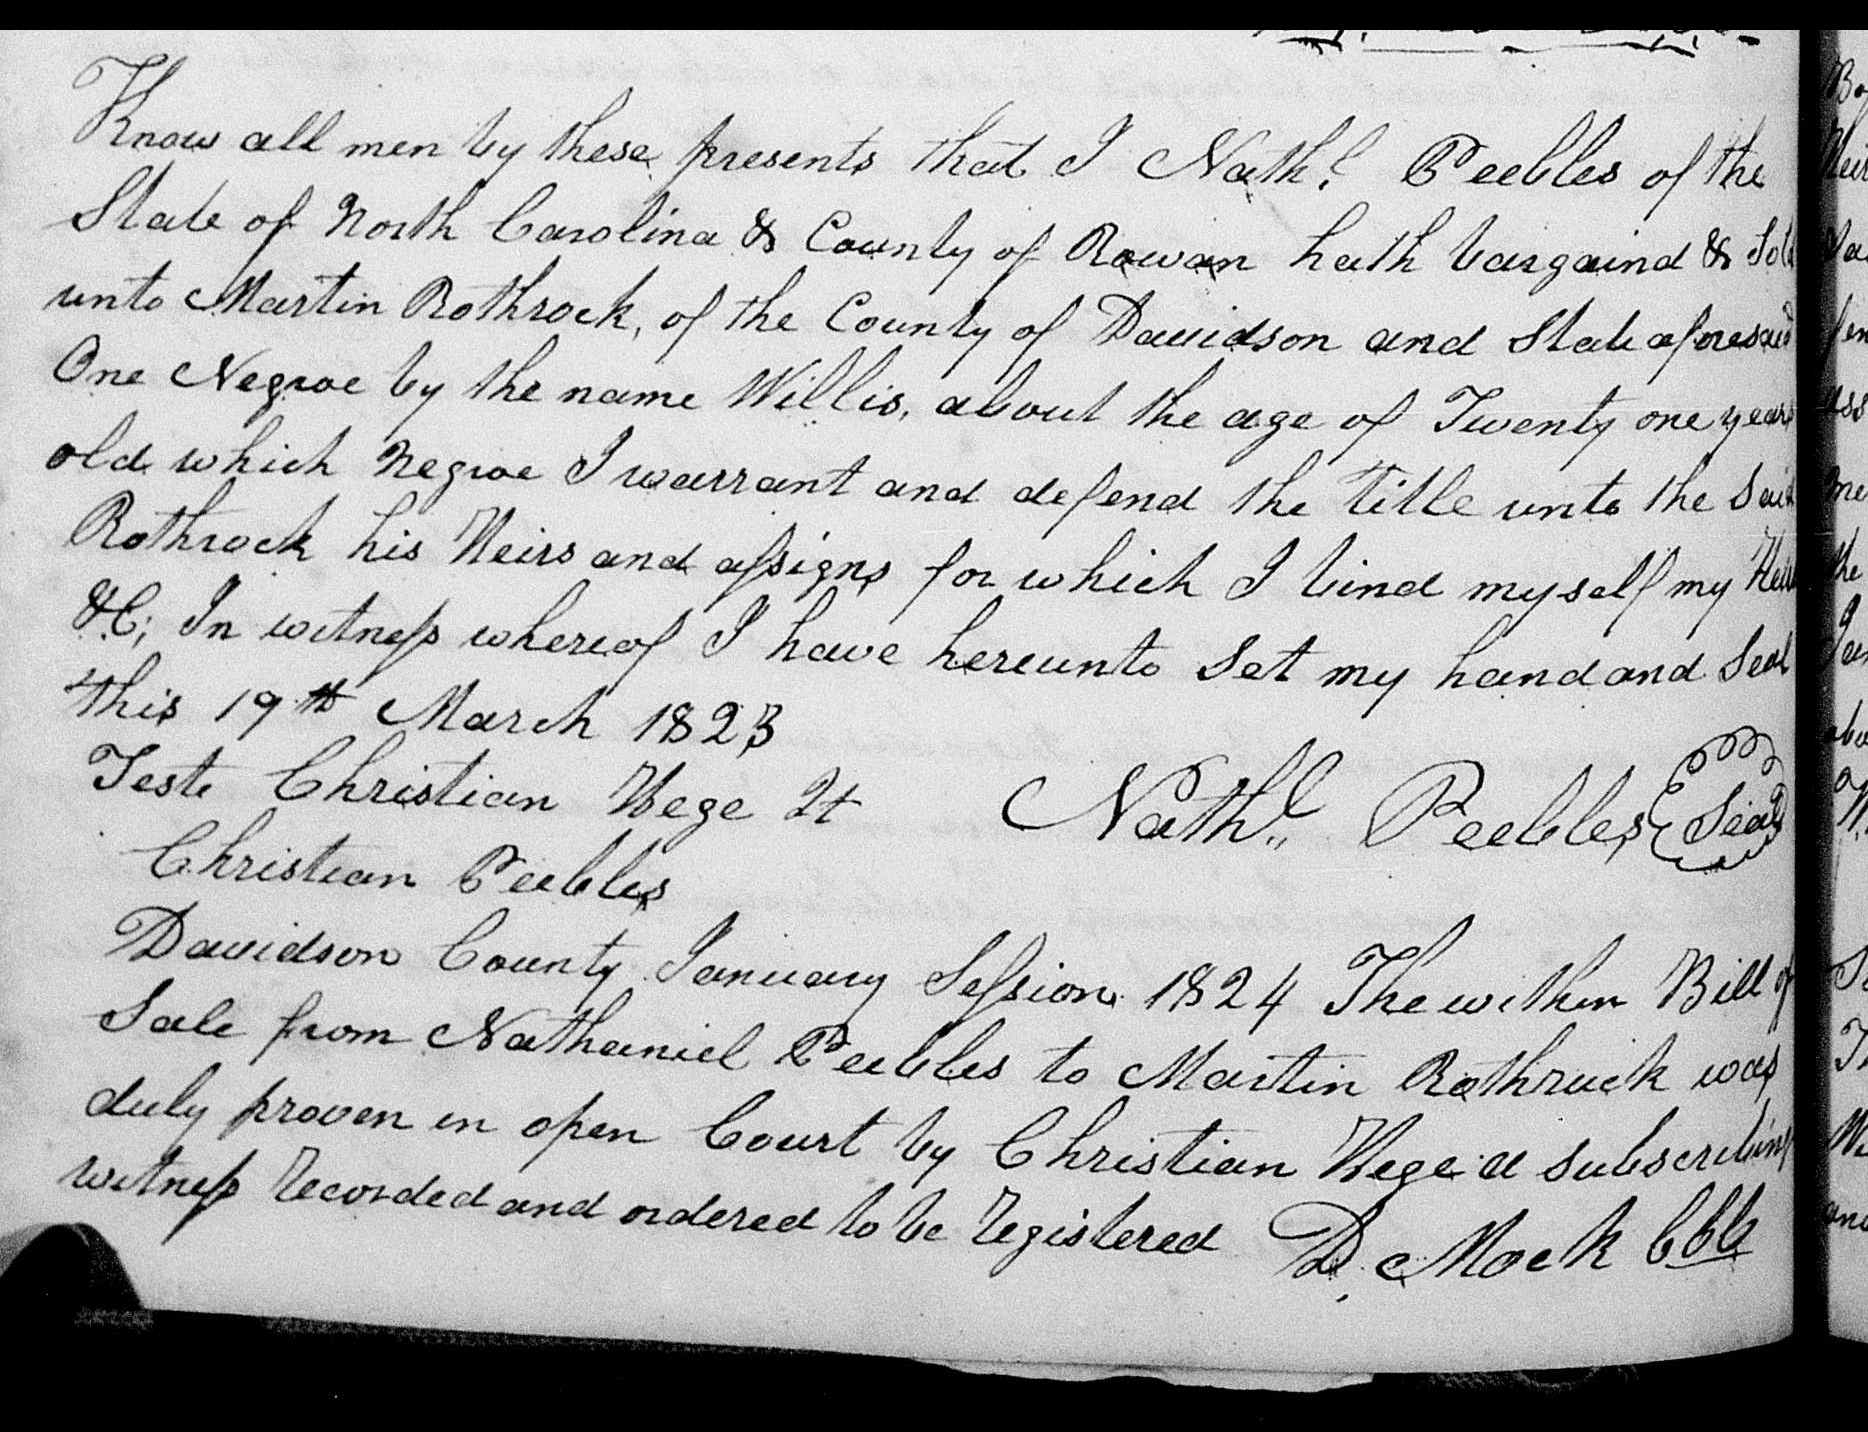 Know all men by these presents that I Nathl. Peebles of the
State of North Carolina & County of Rowan hath bargaind & Sold
unto Martin Rothrock, of the County of Davidson and State aforesaid
One Negroe by the name Willis, about the age of Twenty one years
old which Negroe I warrant and defend the title unto the Said
Rothrock his Heirs and assigns for which I bind myself my Heirs
&C; In witness whereof I have hereunto Set my hand and Seal
this 19th March 1823
Teste Christian Hege Jt Nathl. Peebles Seal
Christian Peebles
Davidson County January Session 1824 The within Bill of
Sale from Nathaniel Peebles to Martin Rothrock was
duly proven in open Court by Christian Hege a subscribing
witness Recorded and ordered to be Registered D. Mock CCC